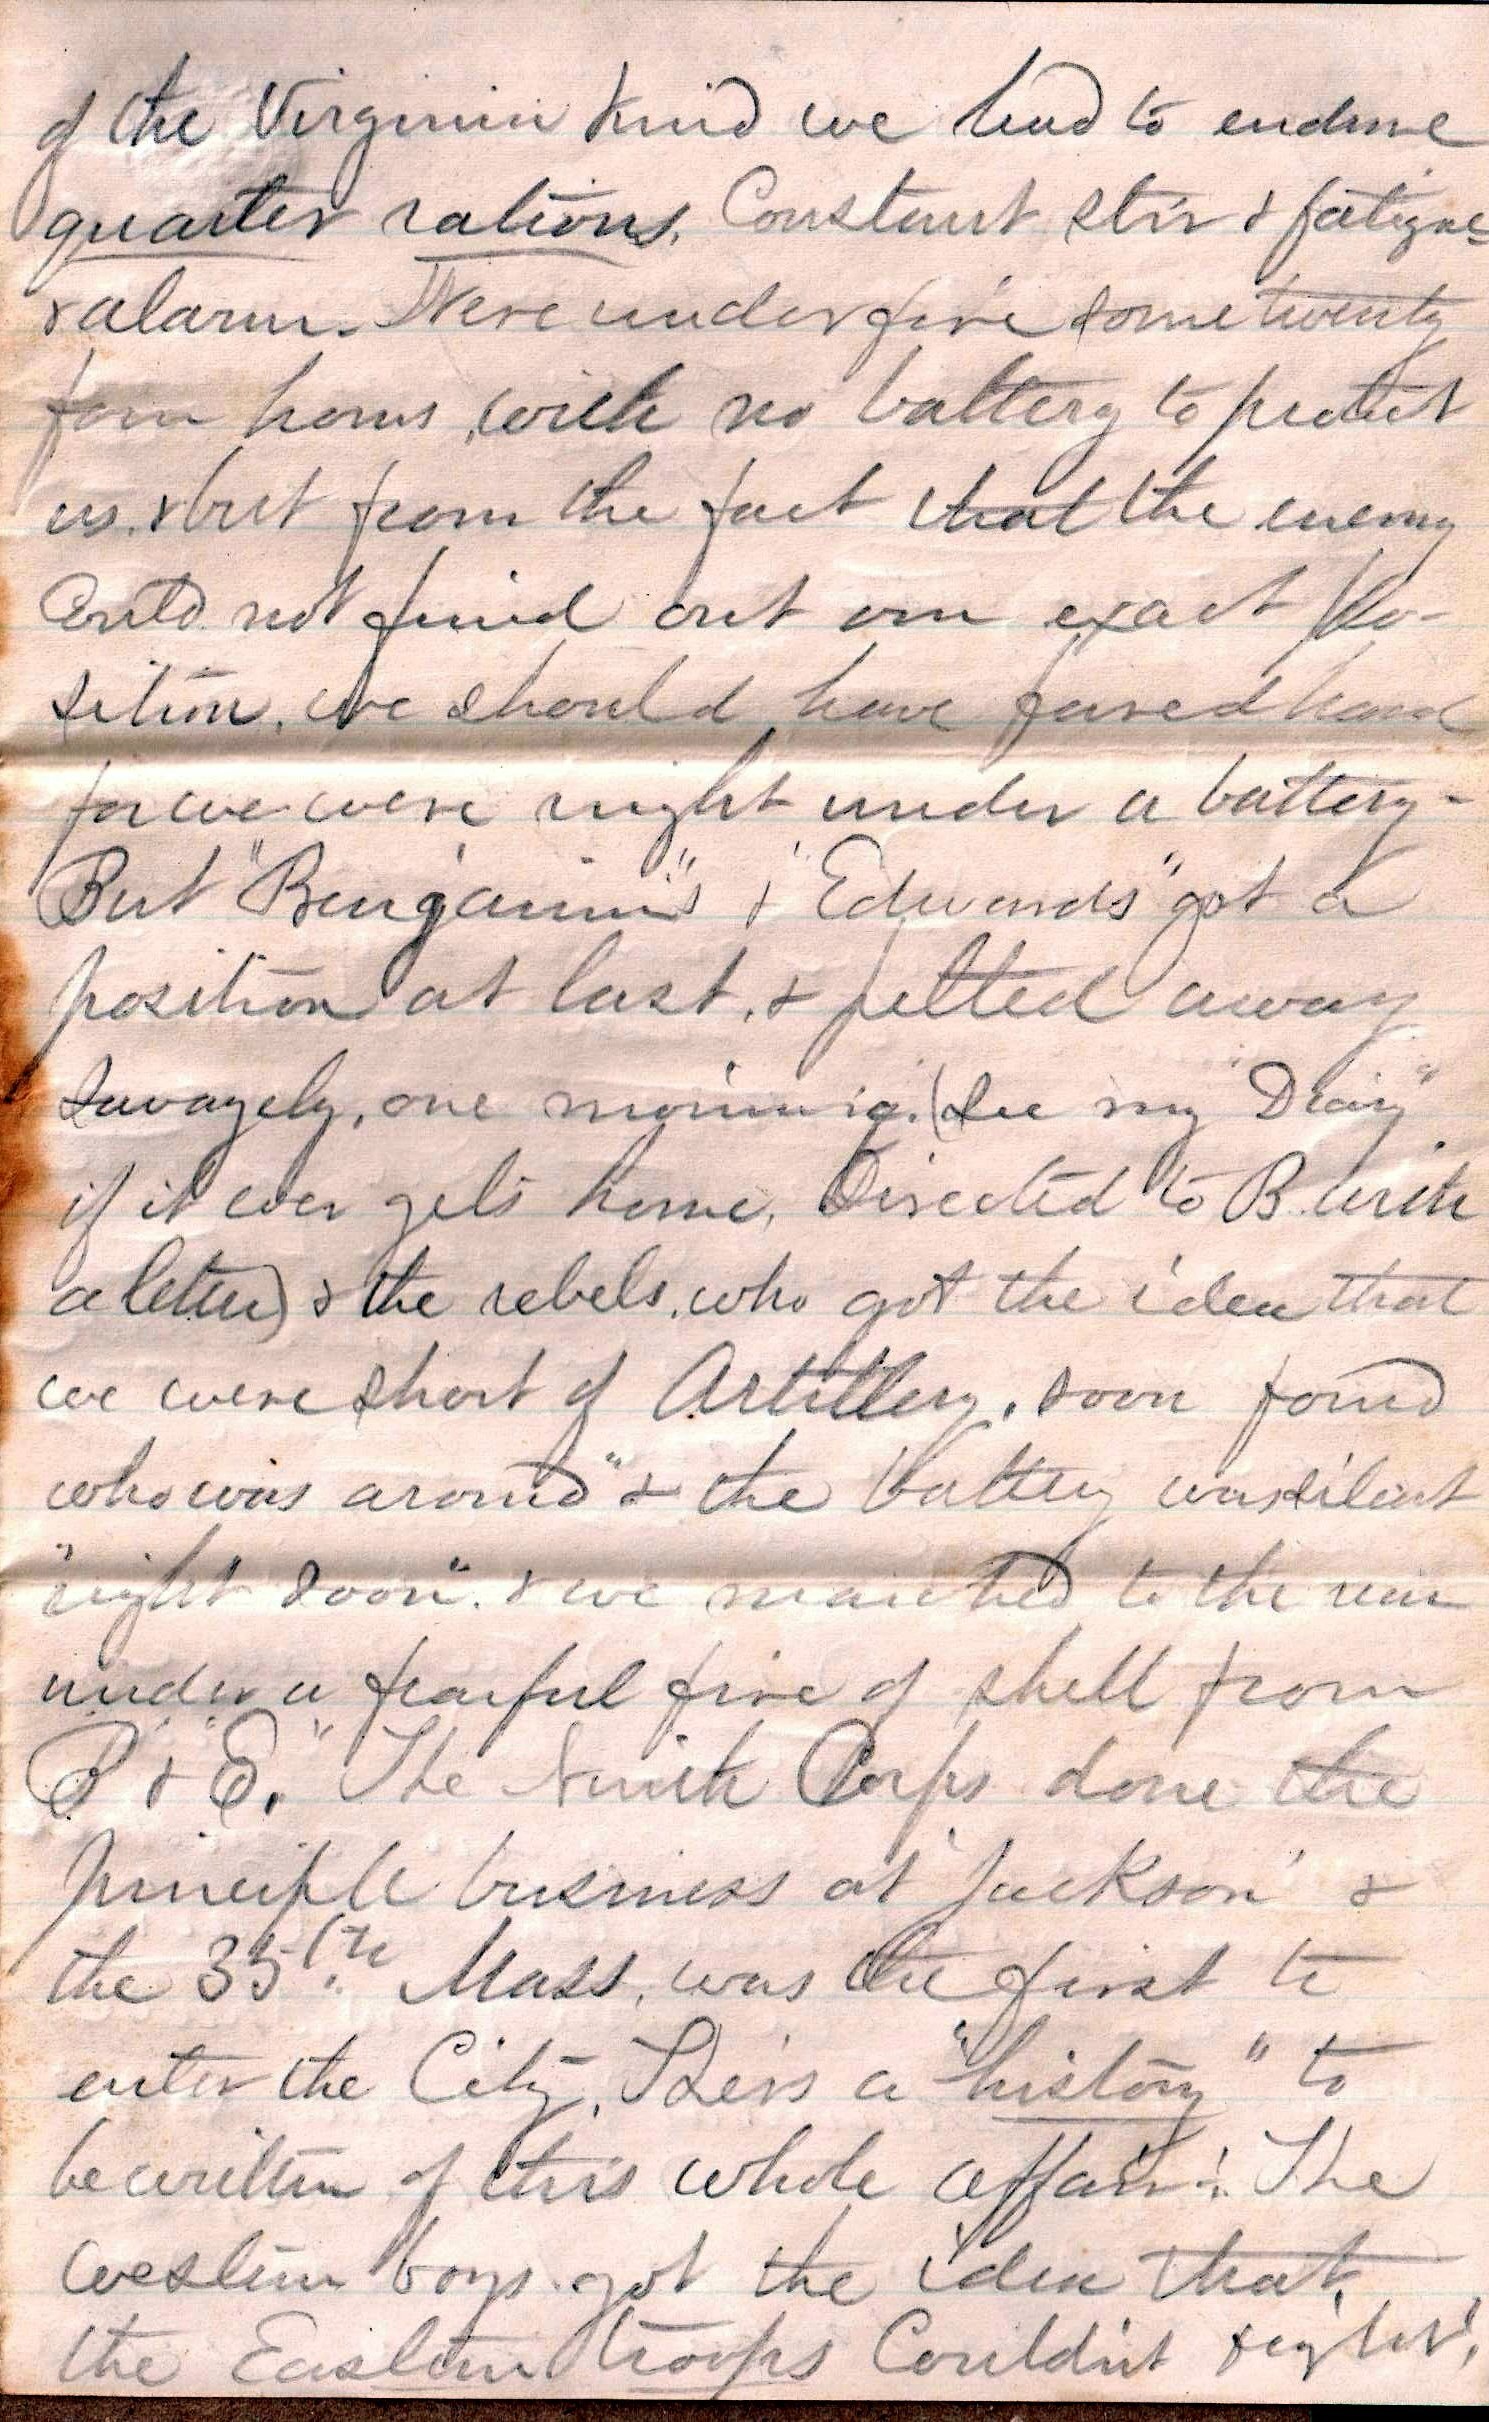 of the Virginia kind we had to endure
quarter rations. Constant stir & fatigue
& alarm. Were under fire some twenty
four hours, with no battery to protect
us. & but from the fact that the enemy
Could not find out our exact po-
sition, we should have fared hard
for we were right under a battery -
But "Benjamin"s & "Edwards" got a
position at last, & pelted away
savagely, one morning. (See my "Diary"
if it ever gets home, Directed to B. with
a letter) & the rebels, who got the idea that
we were short of Artillery, soon found
who was around" & the battery was silent
"right soon". & we marched to the rear
under a fearful fire of shell from
B & "E." The Ninth Corps done the
principle business at Jackson &
the 35th. Mass, was the first to
enter the City, Theirs a "history" to
be written of this whole affair. The
western boys got the idea that
the Eastern troops Couldn't fight,